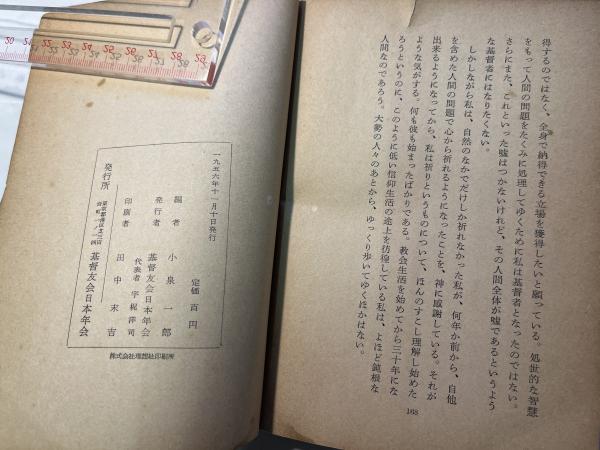 得するのではなく、全身で納得できる立場を獲得したいと願っている。処世的な智慧
をもって人間の問題をたくみに処理してゆくために私は基督者となったのではない。
さらにまた、これといった嘘はつかないけれど、その人間全体が嘘であるというよう
な基督者にはなりたくない。
しかしながら私は、自然のなかでだけしか祈れなかった私が、何年か前から、自他
を含めた人間の問題で心から祈れるようになったことを、神に感謝している。それが
出来るようになってから、私は祈りというものについて、ほんのすこし理解し始めた
ような気がする。何も彼も始まったばかりである。教会生活を始めてから三十年にな
ろうというのに、このように低い信仰生活の途上を彷徨している私は、よほど鈍根な
人間なのであろう。大勢の人々のあとから、ゆっくり歩いてゆくほかはない。
168
一九五六年十一月十日発行
定価百円
編者 小泉一郎
発行者 基督友会日本年会
代表者 宇梶洋司
印刷者 田中末吉
発行所 東京都港区芝三田
基督友会日本年会
株式会社理想社印刷所
20 21 22 23 24 25 26 27 28 29